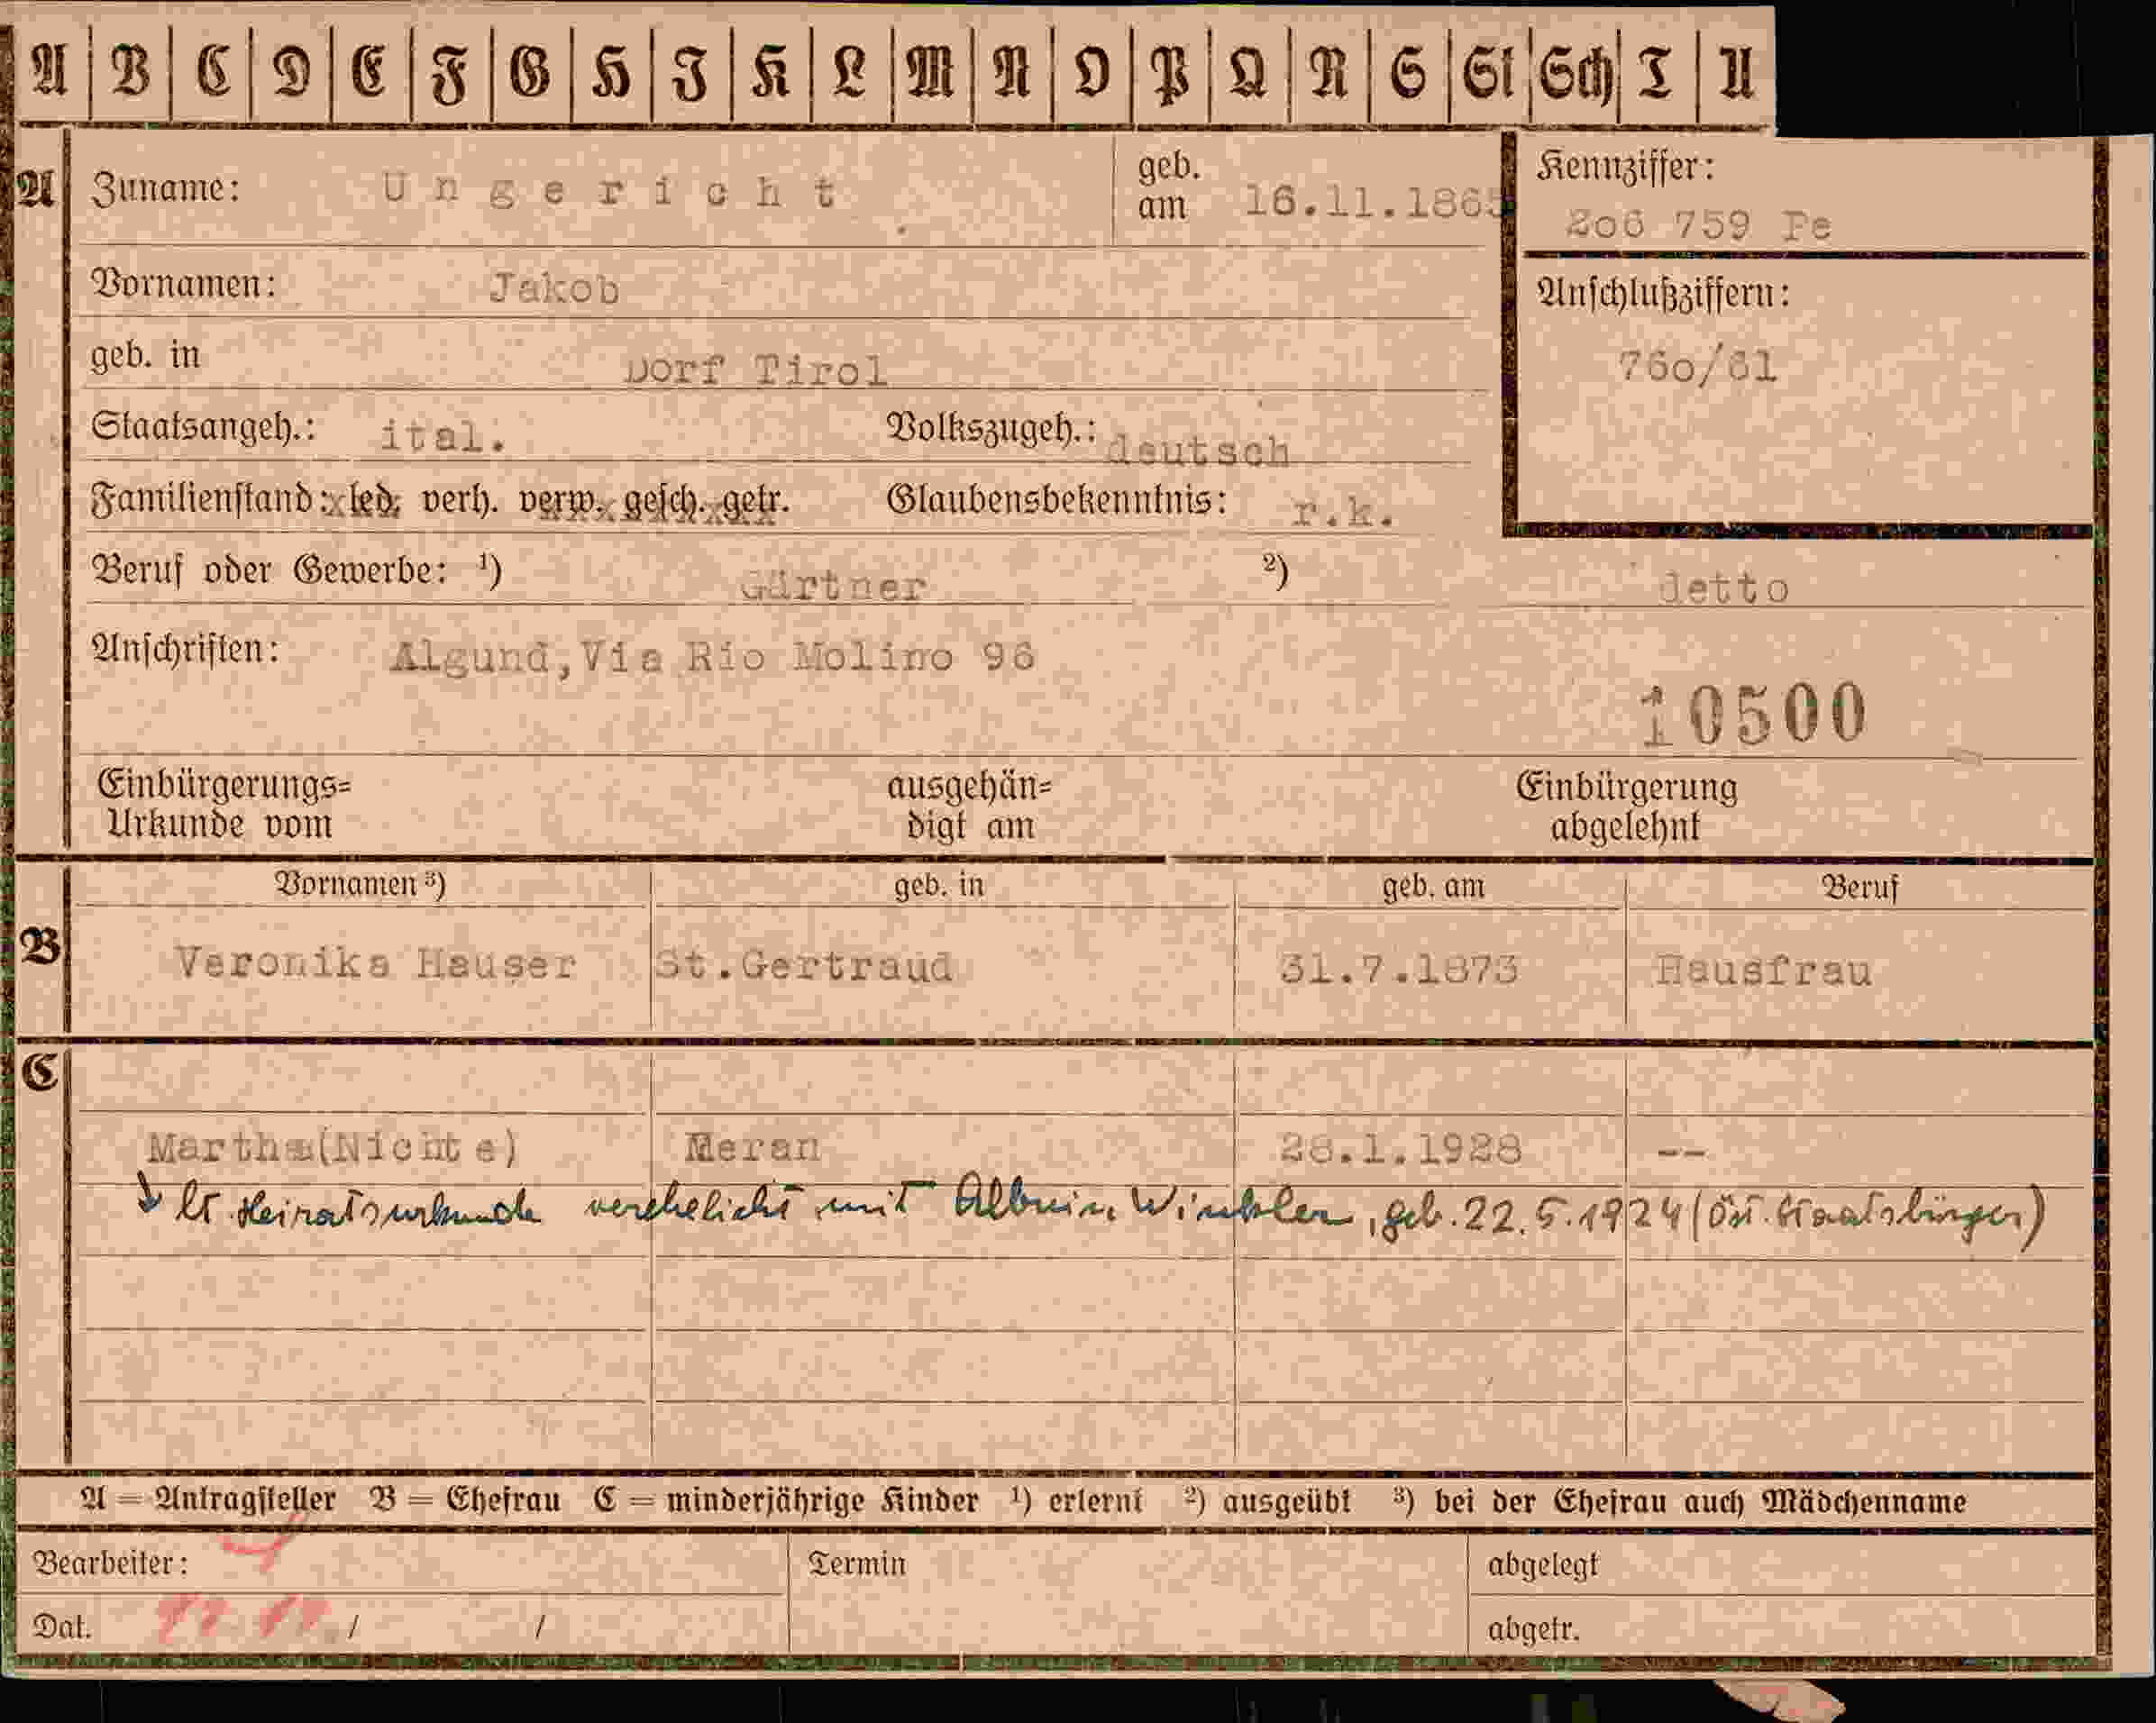 A B C D E F G H I K L M N O P Q R S St Sch T U
A Zuname: Ungericht geb. am 16.11.1865 Kennziffer:
206 759 Pe
Vornamen: Jakob Anschlußziffern:
geb. in Dorf Tirol 760/61
Staatsangeh.: ital. Volkszugeh.: deutsch
Familienstand: led. verh. verw. gesch. getr. Glaubensbekenntnis: r.k.
Beruf oder Gewerbe: ¹) Gärtner ²) detto
Anschriften: Algund, Via Rio Molino 96
10500
Einbürgerungs= ausgehän= Einbürgerung
Urkunde vom digt am abgelehnt
Vornamen ³) geb. in geb. am Beruf
B Veronika Hauser St.Gertraud 31.7.1873 Hausfrau
C
Martha(Nichte) Meran 28.1.1928 --
lt. Heiratsurkunde verehelicht mit Albuin Winkler, geb. 22.5.1924 (Öst. Staatsbürger)
A = Antragsteller B = Ehefrau C = minderjährige Kinder ¹) erlernt ²) ausgeübt ³) bei der Ehefrau auch Mädchenname
Bearbeiter: Termin abgelegt
Dat. / / abgetr.